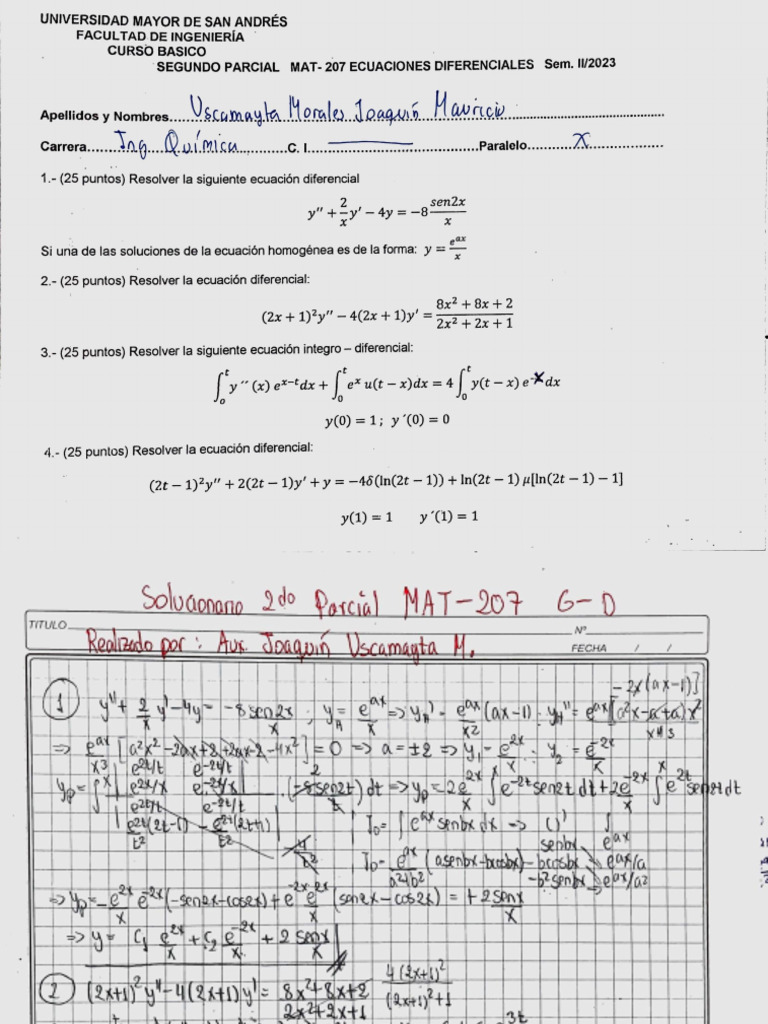 UNIVERSIDAD MAYOR DE SAN ANDRÉS
FACULTAD DE INGENIERÍA
CURSO BASICO
SEGUNDO PARCIAL MAT- 207 ECUACIONES DIFERENCIALES Sem. II/2023
Apellidos y Nombres...Uscamayta Morales Joaquín Mauricio
Carrera...Ing. Química...C. I...Paralelo...X
1.- (25 puntos) Resolver la siguiente ecuación diferencial
y'' + 2/x y' − 4y = −8 sen2x/x
Si una de las soluciones de la ecuación homogénea es de la forma: y = e^{ax}/x
2.- (25 puntos) Resolver la ecuación diferencial:
(2x + 1)²y'' − 4(2x + 1)y' = (8x² + 8x + 2)/(2x² + 2x + 1)
3.- (25 puntos) Resolver la siguiente ecuación integro – diferencial:
∫₀ᵗ y´´(x) e^{x−t}dx + ∫₀ᵗ eˣ u(t − x)dx = 4 ∫₀ᵗ y(t − x) e^{-x}dx
y(0) = 1; y´(0) = 0
4.- (25 puntos) Resolver la ecuación diferencial:
(2t − 1)²y'' + 2(2t − 1)y' + y = −4δ(ln(2t − 1)) + ln(2t − 1) μ[ln(2t − 1) − 1]
y(1) = 1 y´(1) = 1
Solucionario 2do Parcial MAT-207 G-D
TITULO
Nº
Realizado por: Aux. Joaquín Uscamayta M.
FECHA / /
-2x(ax-1)]
1 y''+ 2/x y'-4y = -8sen2x/x ; y_h = e^{ax}/x => y_h' = e^{ax}/x2 (ax-1)
=> e^{ax}/x3 = 0 => a=±2 => y1 = e^{2x}/x ; y2 = e^{-2x}/x
=> yp = 2e^{2x}/x ∫e^{-2t}sen2t dt + 2e^{-2x}/x ∫e^{2t}sen2t dt
I0 = ∫e^{ax}senbx dx => ()' ∫
senbx e^{ax}
I0 = e^{ax}/(a²+b²) (asenbx-bcosbx) bcosbx e^{ax}/a
-b²senbx e^{ax}/a²
=> yp = -e^{2x}/x e^{-2x}(-sen2x-cos2x) + (sen2x-cos2x) = +2senx/x
=> y = C1 e^{2x}/x + C2 e^{-2x}/x + 2 senx/x
2 (2x+1)²y''-4(2x+1)y' = (8x²+8x+2)/(2x²+2x+1) 4(2x+1)²/((2x+1)²+1)